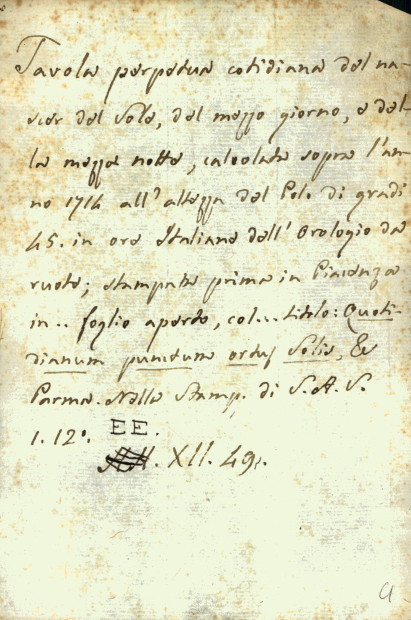 Tavola perpetua cotidiana del na-
scer del Sole, del mezzo giorno, e del-
la mezza notte, calcolata sopra l'an-
no 1714 all'altezza del Polo di gradi
45. in ore Italiane dell'Orologio da
ruote; stampata prima in Piacenza
in .. foglio aperto, col... titolo: Quoti-
dianum punctum ortus Solis, &
Parma. Nella Stamp. di S. A. S.
1. 12°. EE.
XII. 49.